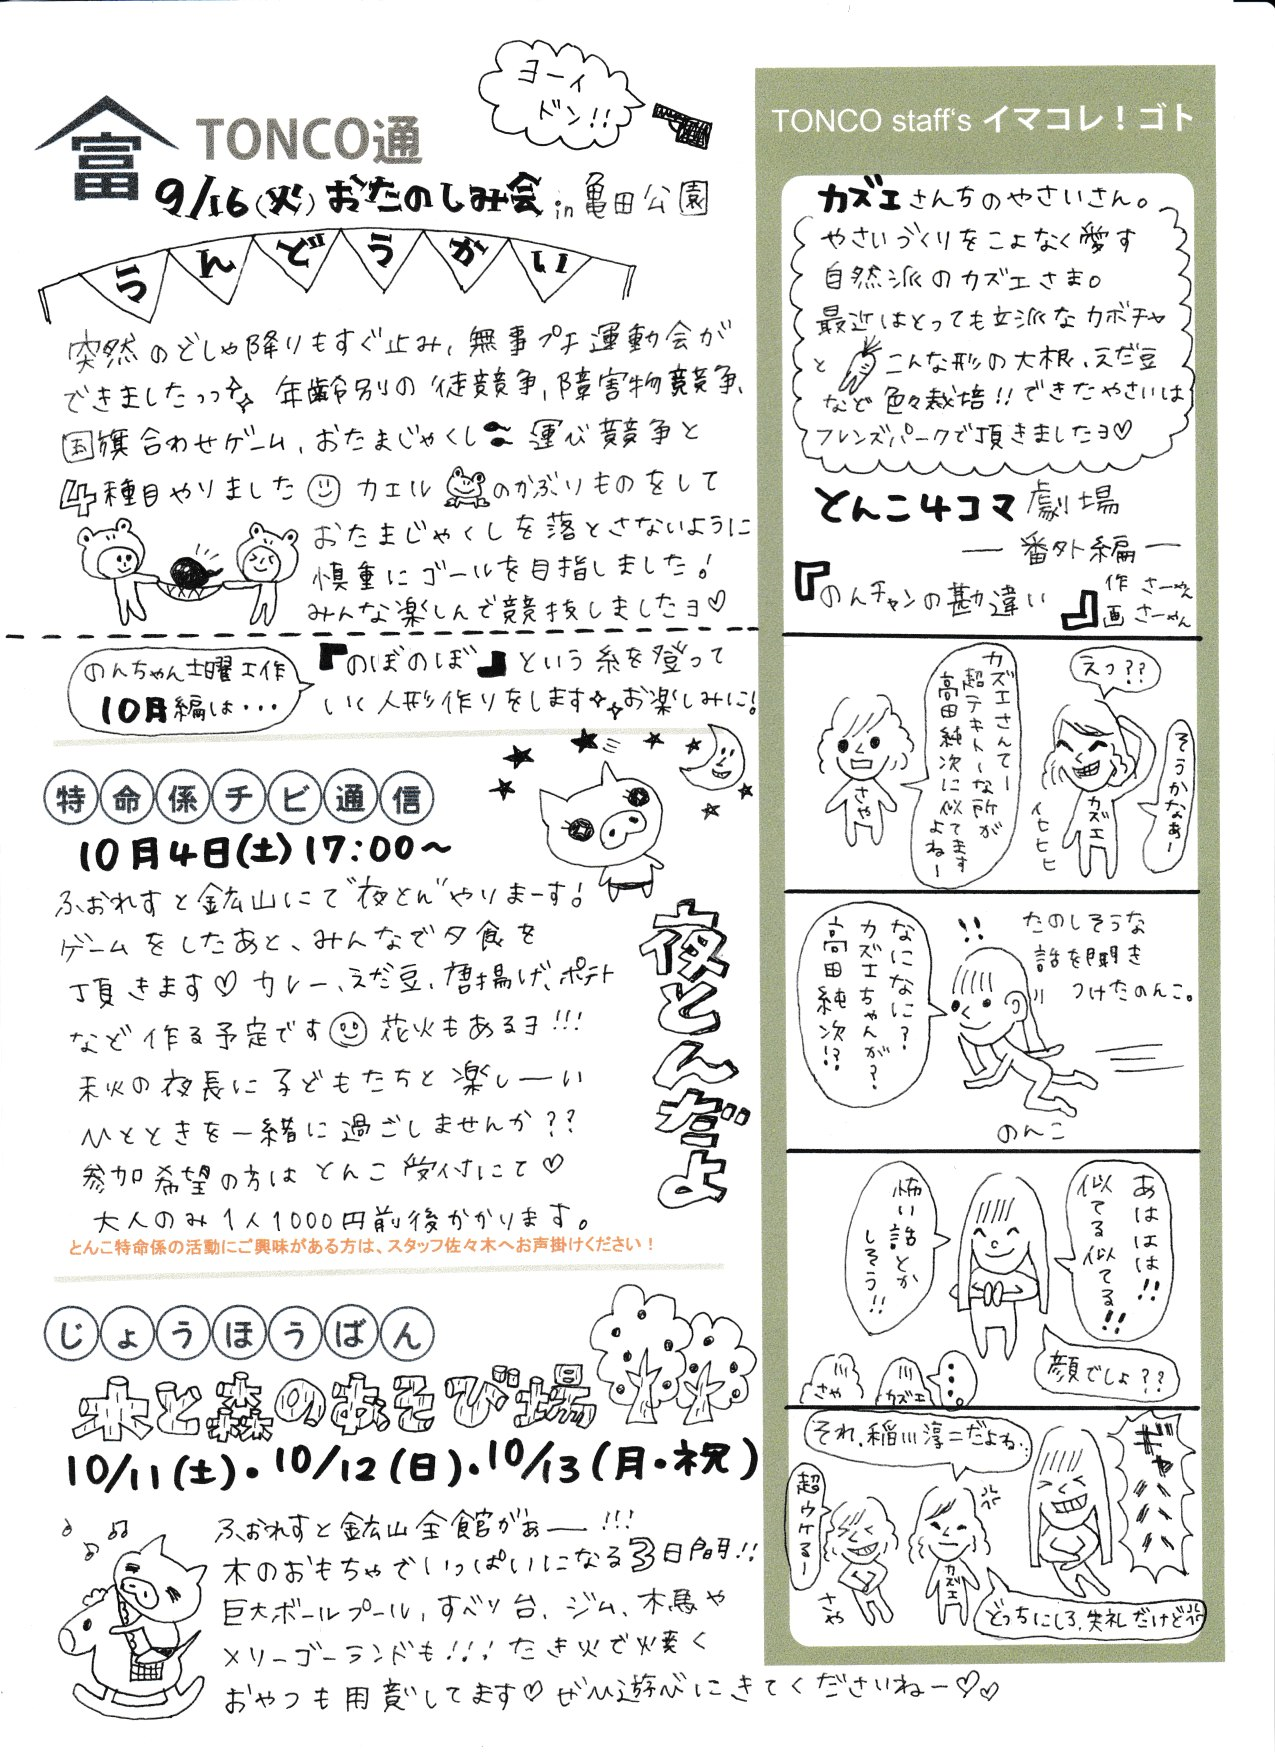 富
TONCO通
ヨーイ
ドン!!
9/16(火)おたのしみ会 in 亀田公園
うんどうかい
突然のどしゃ降りもすぐ止み、無事プチ運動会が
できましたっっ 年齢別の徒競争、障害物競争、
国旗合わせゲーム、おたまじゃくし運び競争と
4種目やりました カエルのかぶりものをして
おたまじゃくしを落とさないように
慎重にゴールを目指しました!
みんな楽しんで競技しましたヨ♡
のんちゃん土曜工作
10月編は・・・
『のぼのぼ』という糸を登って
いく人形作りをします お楽しみに!
特命係チビ通信
10月4日(土)17:00~
ふぉれすと鉱山にて"夜とん"やりまーす!
ゲームをしたあと、みんなで夕食を
頂きます♡ カレー、えだ豆、唐揚げ、ポテト
など作る予定です 花火もあるヨ!!!
秋の夜長に子どもたちと楽しーい
ひとときを一緒に過ごしませんか??
参加希望の方はとんこ受付にて♡
大人のみ1人1000円前後かかります。
夜とんだよ
とんこ特命係の活動にご興味がある方は、スタッフ佐々木へお声掛けください！
じょうほうばん
木と森のあそび場
10/11(土)・10/12(日)・10/13(月・祝)
ふぉれすと鉱山全館がぁー!!!
木のおもちゃでいっぱいになる3日間!!
巨大ボールプール、すべり台、ジム、木馬や
メリーゴーランドも!!! たき火で焼く
おやつも用意してます♡ ぜひ遊びにきてくださいねー♡♡
TONCO staff's イマコレ！ゴト
カズエさんちのやさいさん。
やさいづくりをこよなく愛す
自然派のカズエさま。
最近はとっても立派なカボチャ
と こんな形の大根、えだ豆
など色々栽培!! できたやさいは
フレンズパークで頂きましたヨ♡
とんこ4コマ劇場
ー番外編ー
『のんチャンの勘違い』
作 さーやん
画 さーやん
カズエさんてー
超テキトーな所が
高田純次に似てます
よねー
さや
えっ??
そうかなぁー
イヒヒヒ
カズエ
なになに?
カズエちゃんが?
高田純次!?
!!
たのしそうな
話を聞き
つけたのんこ。
のんこ
怖い話とか
しそう!!
あははは!!
似てる似てる!!
顔でしょ??
さや
カズエ
・・・
それ、稲川淳二だよね・・
ギャハハハ
超ウケるー
さや
カズエ
どっちにしろ、失礼だけど